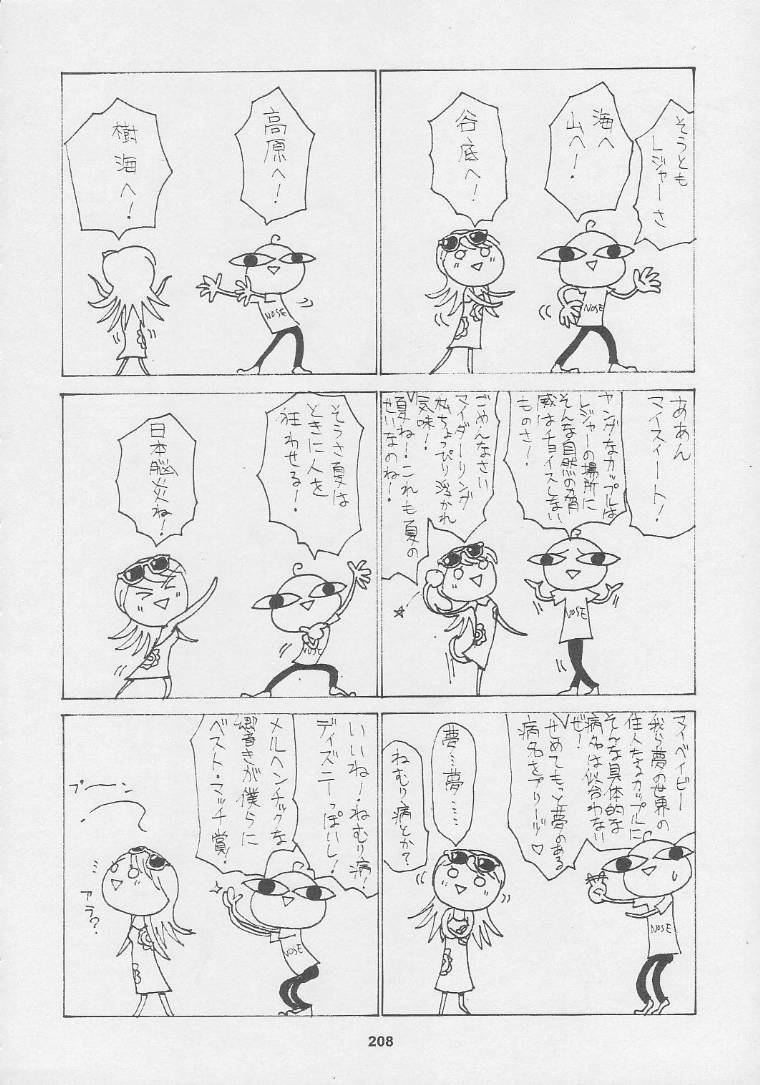 そうとも
レジャーさ
海へ
山へ！
NOSE
谷底へ！
高原へ！
NOSE
樹海へ！
ああん
マイスィート！
ヤングなカップルは
レジャーの場所に
そんな自然の脅
威はチョイスしない
ものさ！
NOSE
ごめんなさい
マイダーリング
私ちょっぴり浮かれ
気味！
夏ね！これも夏の
せいなのね！
そうさ夏は
ときに人を
狂わせる！
NOSE
日本脳炎ね！
マイベイビー
我ら夢の世界の
住人たるカップルに
そんな具体的な
病名は似合わない
ぜ！
せめてもっと夢のある
病名をプリーズ♡
NOSE
夢…夢……
ねむり病とか？
いいね！ねむり病！
ディズニーっぽいし！
メルヘンチックな
響きが僕らに
ベスト・マッチ賞！
NOSE
プーーン
アラ？
208